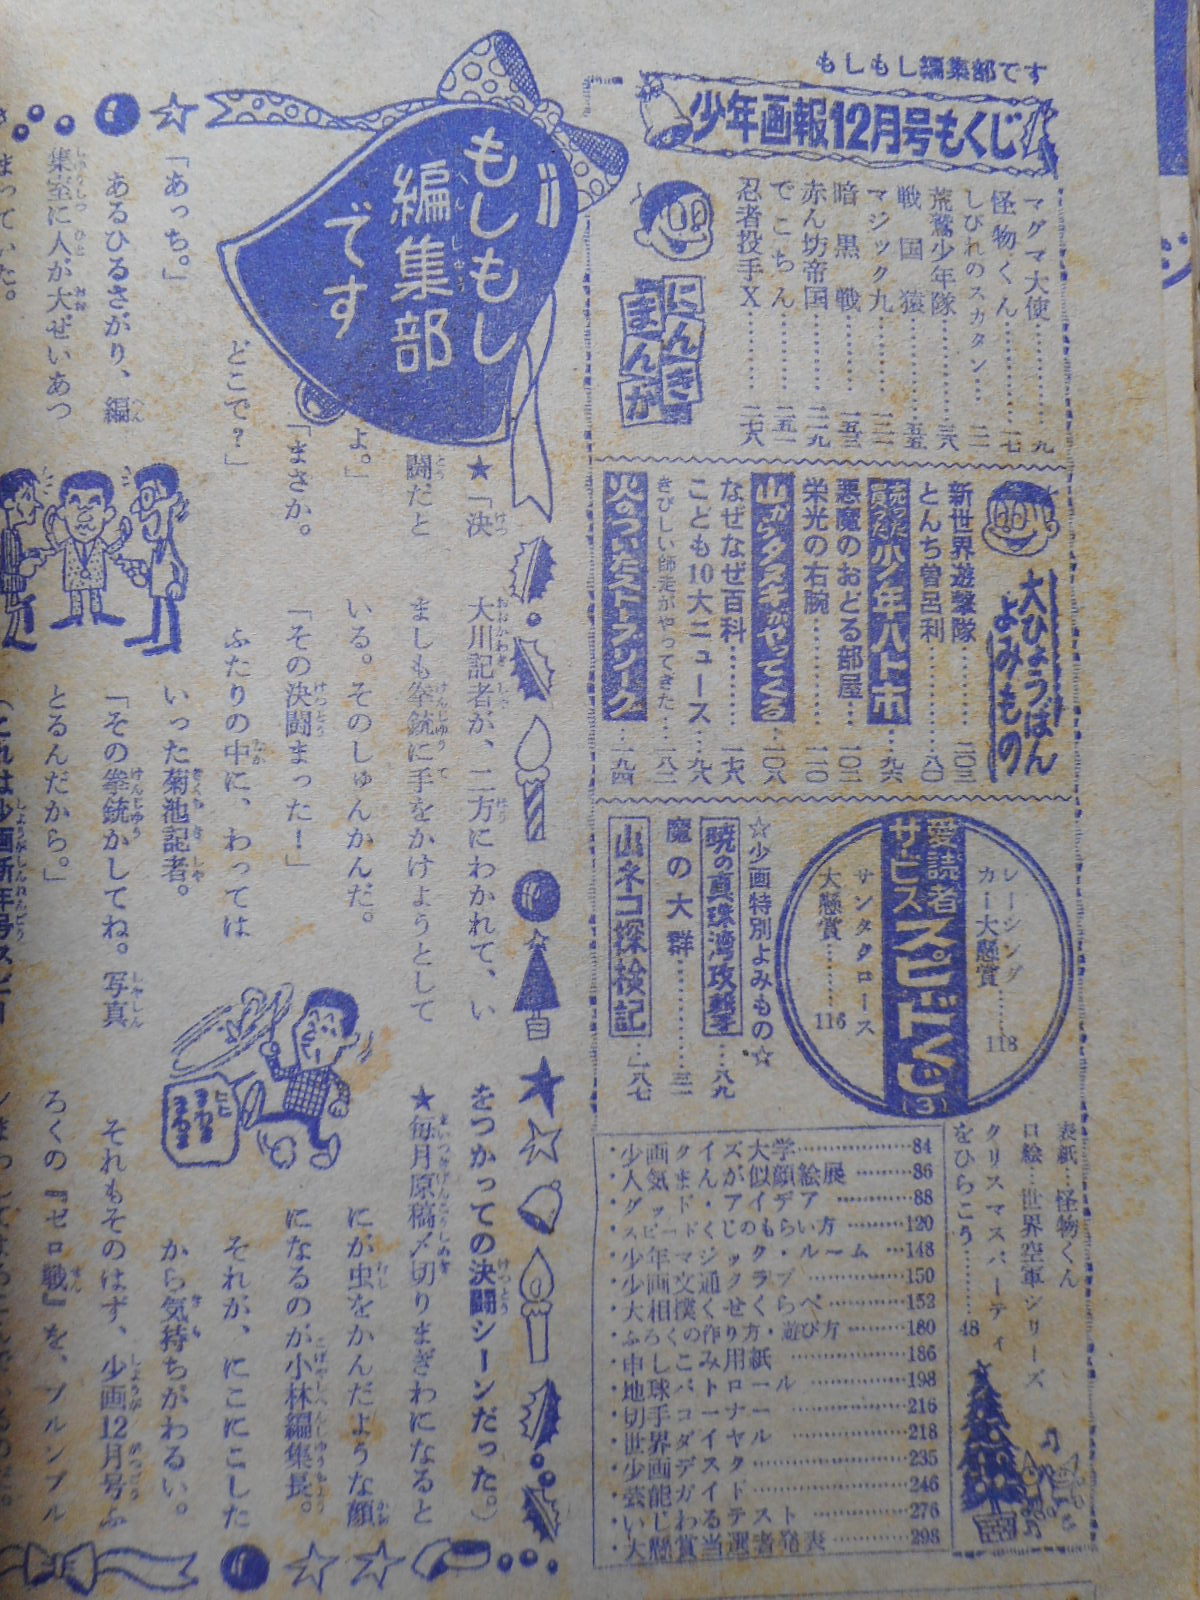 もしもし編集部です
少年画報12月号もくじ
にんき
まんが
マグマ大使……九
怪物くん……一七
しびれのスカタン……
荒鷲少年隊……
戦国猿……
マジック九……
暗黒戦……一五三
赤ん坊帝国……
でこちん……二五一
忍者投手X……二七八
大ひょうばん
よみもの
新世界遊撃隊……二〇三
とんち曽呂利……一八〇
少年ハトホ……九六
悪魔のおどる部屋……一〇二
栄光の右腕……一一〇
山からクマがやってくる……一〇八
なぜなぜ百科……一七八
こども10大ニュース……一九六
きびしい師走がやってきた……一八二
火のついたストブリーグ……一九四
愛読者サービス
スピードくじ(3)
レーシングカー大懸賞……118
サンタクロース大懸賞……116
☆少画特別よみもの☆
暁の真珠湾攻撃……八九
魔の大群……三二
山ネコ探検記……一八七
表紙…怪物くん
口絵…世界空軍シリーズ
クリスマスパーティをひらこう……48
・少画クイズ大学……84
・人気まんが似顔絵展……86
・グッド・アイデア……88
・スピードくじのもらい方……120
・少年マジック・ルーム……148
・少画文通クラブ……150
・大相撲くせくらべ……152
・ふろくの作り方・遊び方……180
・申しこみ用紙……186
・地球パトロール……198
・切手コーナー……216
・世界ダイヤル……218
・少画デスク……235
・芸能ガイド……246
・いじわるテスト……276
・大懸賞当選者発表……298
もしもし編集部です
★「決闘だとよ。」
「まさか。どこで?」
「あっち。」
あるひるさがり、編集室に人が大ぜいあつまっていた。
大川記者が、二方にわかれて、いましも拳銃に手をかけようとしている。そのしゅんかんだ。
「その決闘まった!」
ふたりの中に、わってはいった菊池記者。
「その拳銃かしてね。写真とるんだから。」
(これは少画新年号スピー
をつかっての決闘シーンだった。)
★毎月原稿〆切りまぎわになると
にが虫をかんだような顔になるのが小林編集長。
それが、にこにこしたから気持ちがわるい。
それもそのはず、少画12月号ふろくの『ゼロ戦』を、ブルンブル